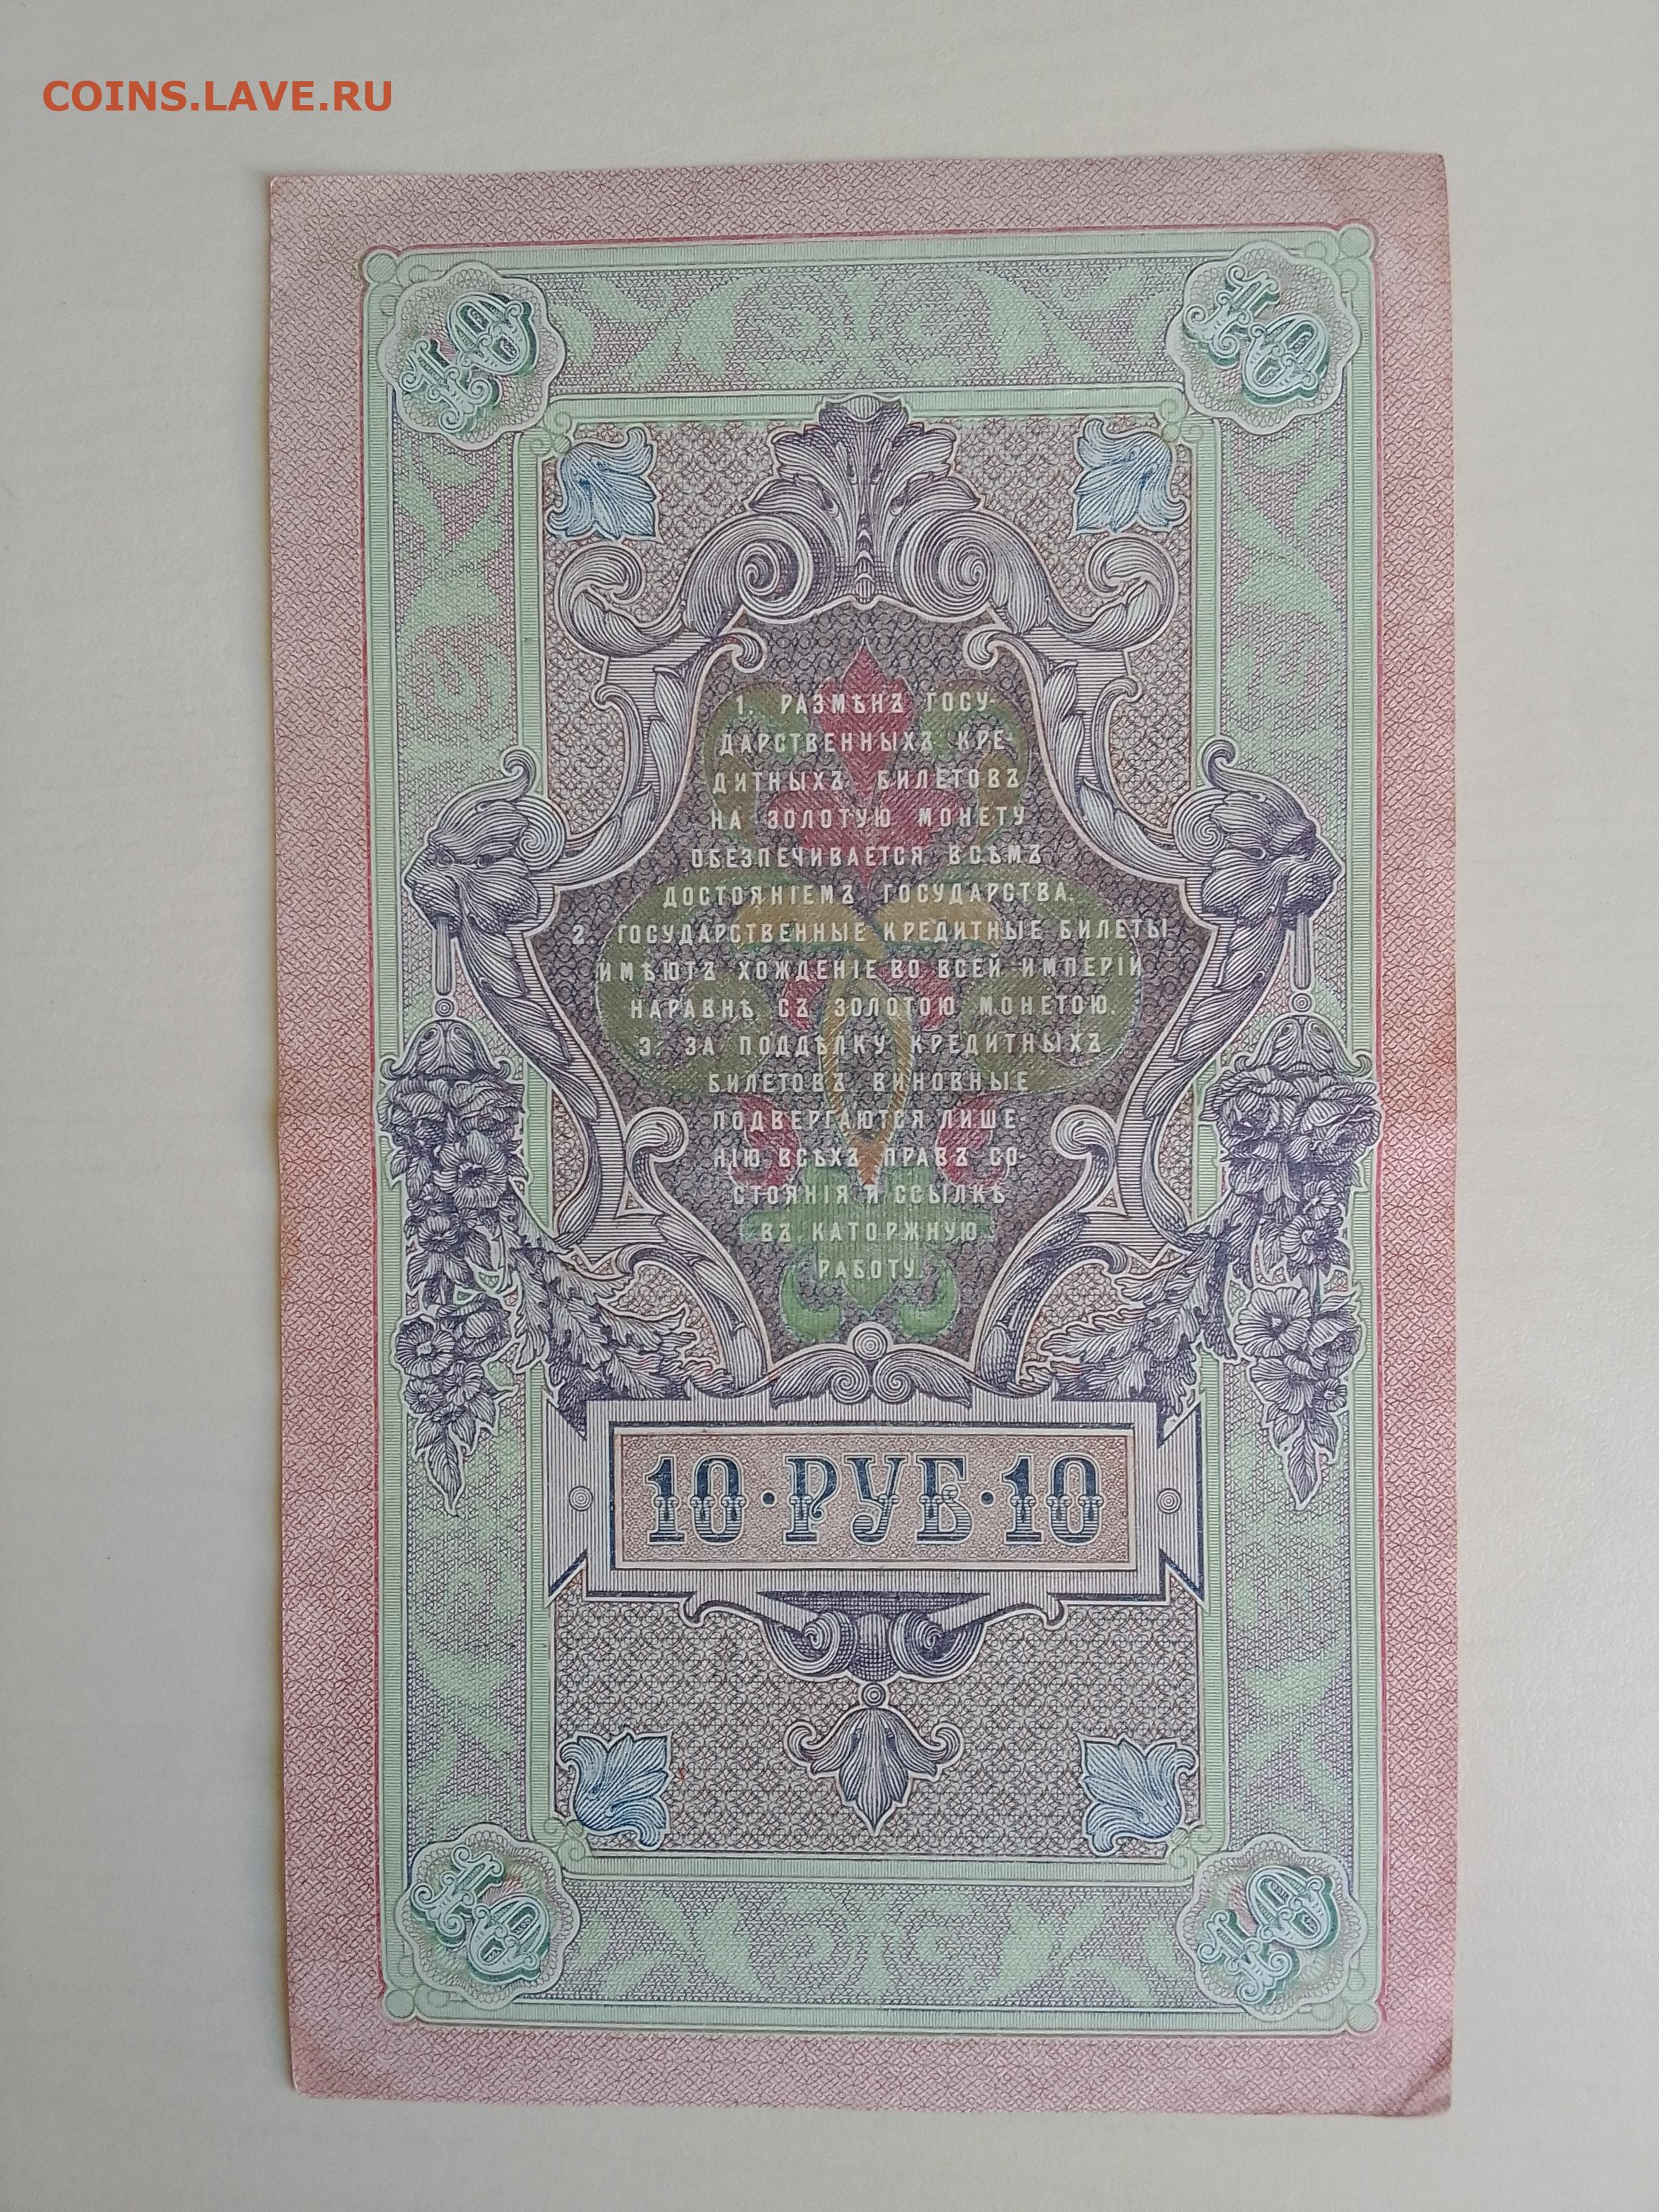 COINS.LAVE.RU
10
10
1. РАЗМѢНЪ ГОСУ-
ДАРСТВЕННЫХЪ КРЕ
ДИТНЫХЪ БИЛЕТОВЪ
НА ЗОЛОТУЮ МОНЕТУ
ОБЕЗПЕЧИВАЕТСЯ ВСѢМЪ
ДОСТОЯНІЕМЪ ГОСУДАРСТВА.
2. ГОСУДАРСТВЕННЫЕ КРЕДИТНЫЕ БИЛЕТЫ
ИМѢЮТЪ ХОЖДЕНІЕ ВО ВСЕЙ ИМПЕРІИ
НАРАВНѢ СЪ ЗОЛОТОЮ МОНЕТОЮ.
3. ЗА ПОДДѢЛКУ КРЕДИТНЫХЪ
БИЛЕТОВЪ ВИНОВНЫЕ
ПОДВЕРГАЮТСЯ ЛИШЕ
НІЮ ВСѢХЪ ПРАВЪ СО-
СТОЯНІЯ И ССЫЛКѢ
ВЪ КАТОРЖНУЮ
РАБОТУ.
10·РУБ·10
10
10